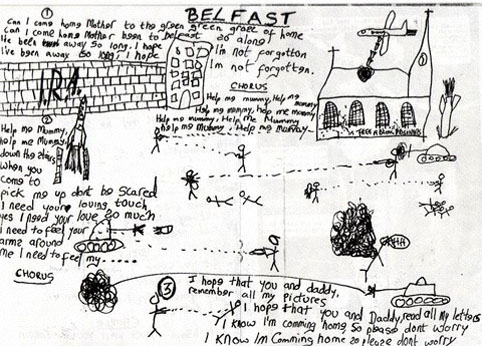 BELFAST
①
Can I come home Mother to the green green grass of home
Can I come home Mother been to Belfast so along
He been away so long, I hope I'm not forgotten
I've been away so long, I hope I'm not forgotten.
CHORUS
Help me mummy, Help me mummy
Help me mummy, help me mummy
Help me mummy, Help me Mummy
help me Mummy, Help me Mummy
I.R.A.
②
Help me Mummy,
help me Mummy
down the stairs
When you
come to
pick me up dont be Scared
I need your loving touch,
yes I need your love so much
I need to feel your
arms around
me I need to feel my.....
CHORUS
③
I hope that you and daddy,
remember all my pictures
I hope that you and Daddy, read all My letters
I know I'm comming home, so please dont worry
I KNOW I'm Comming home so please dont worry